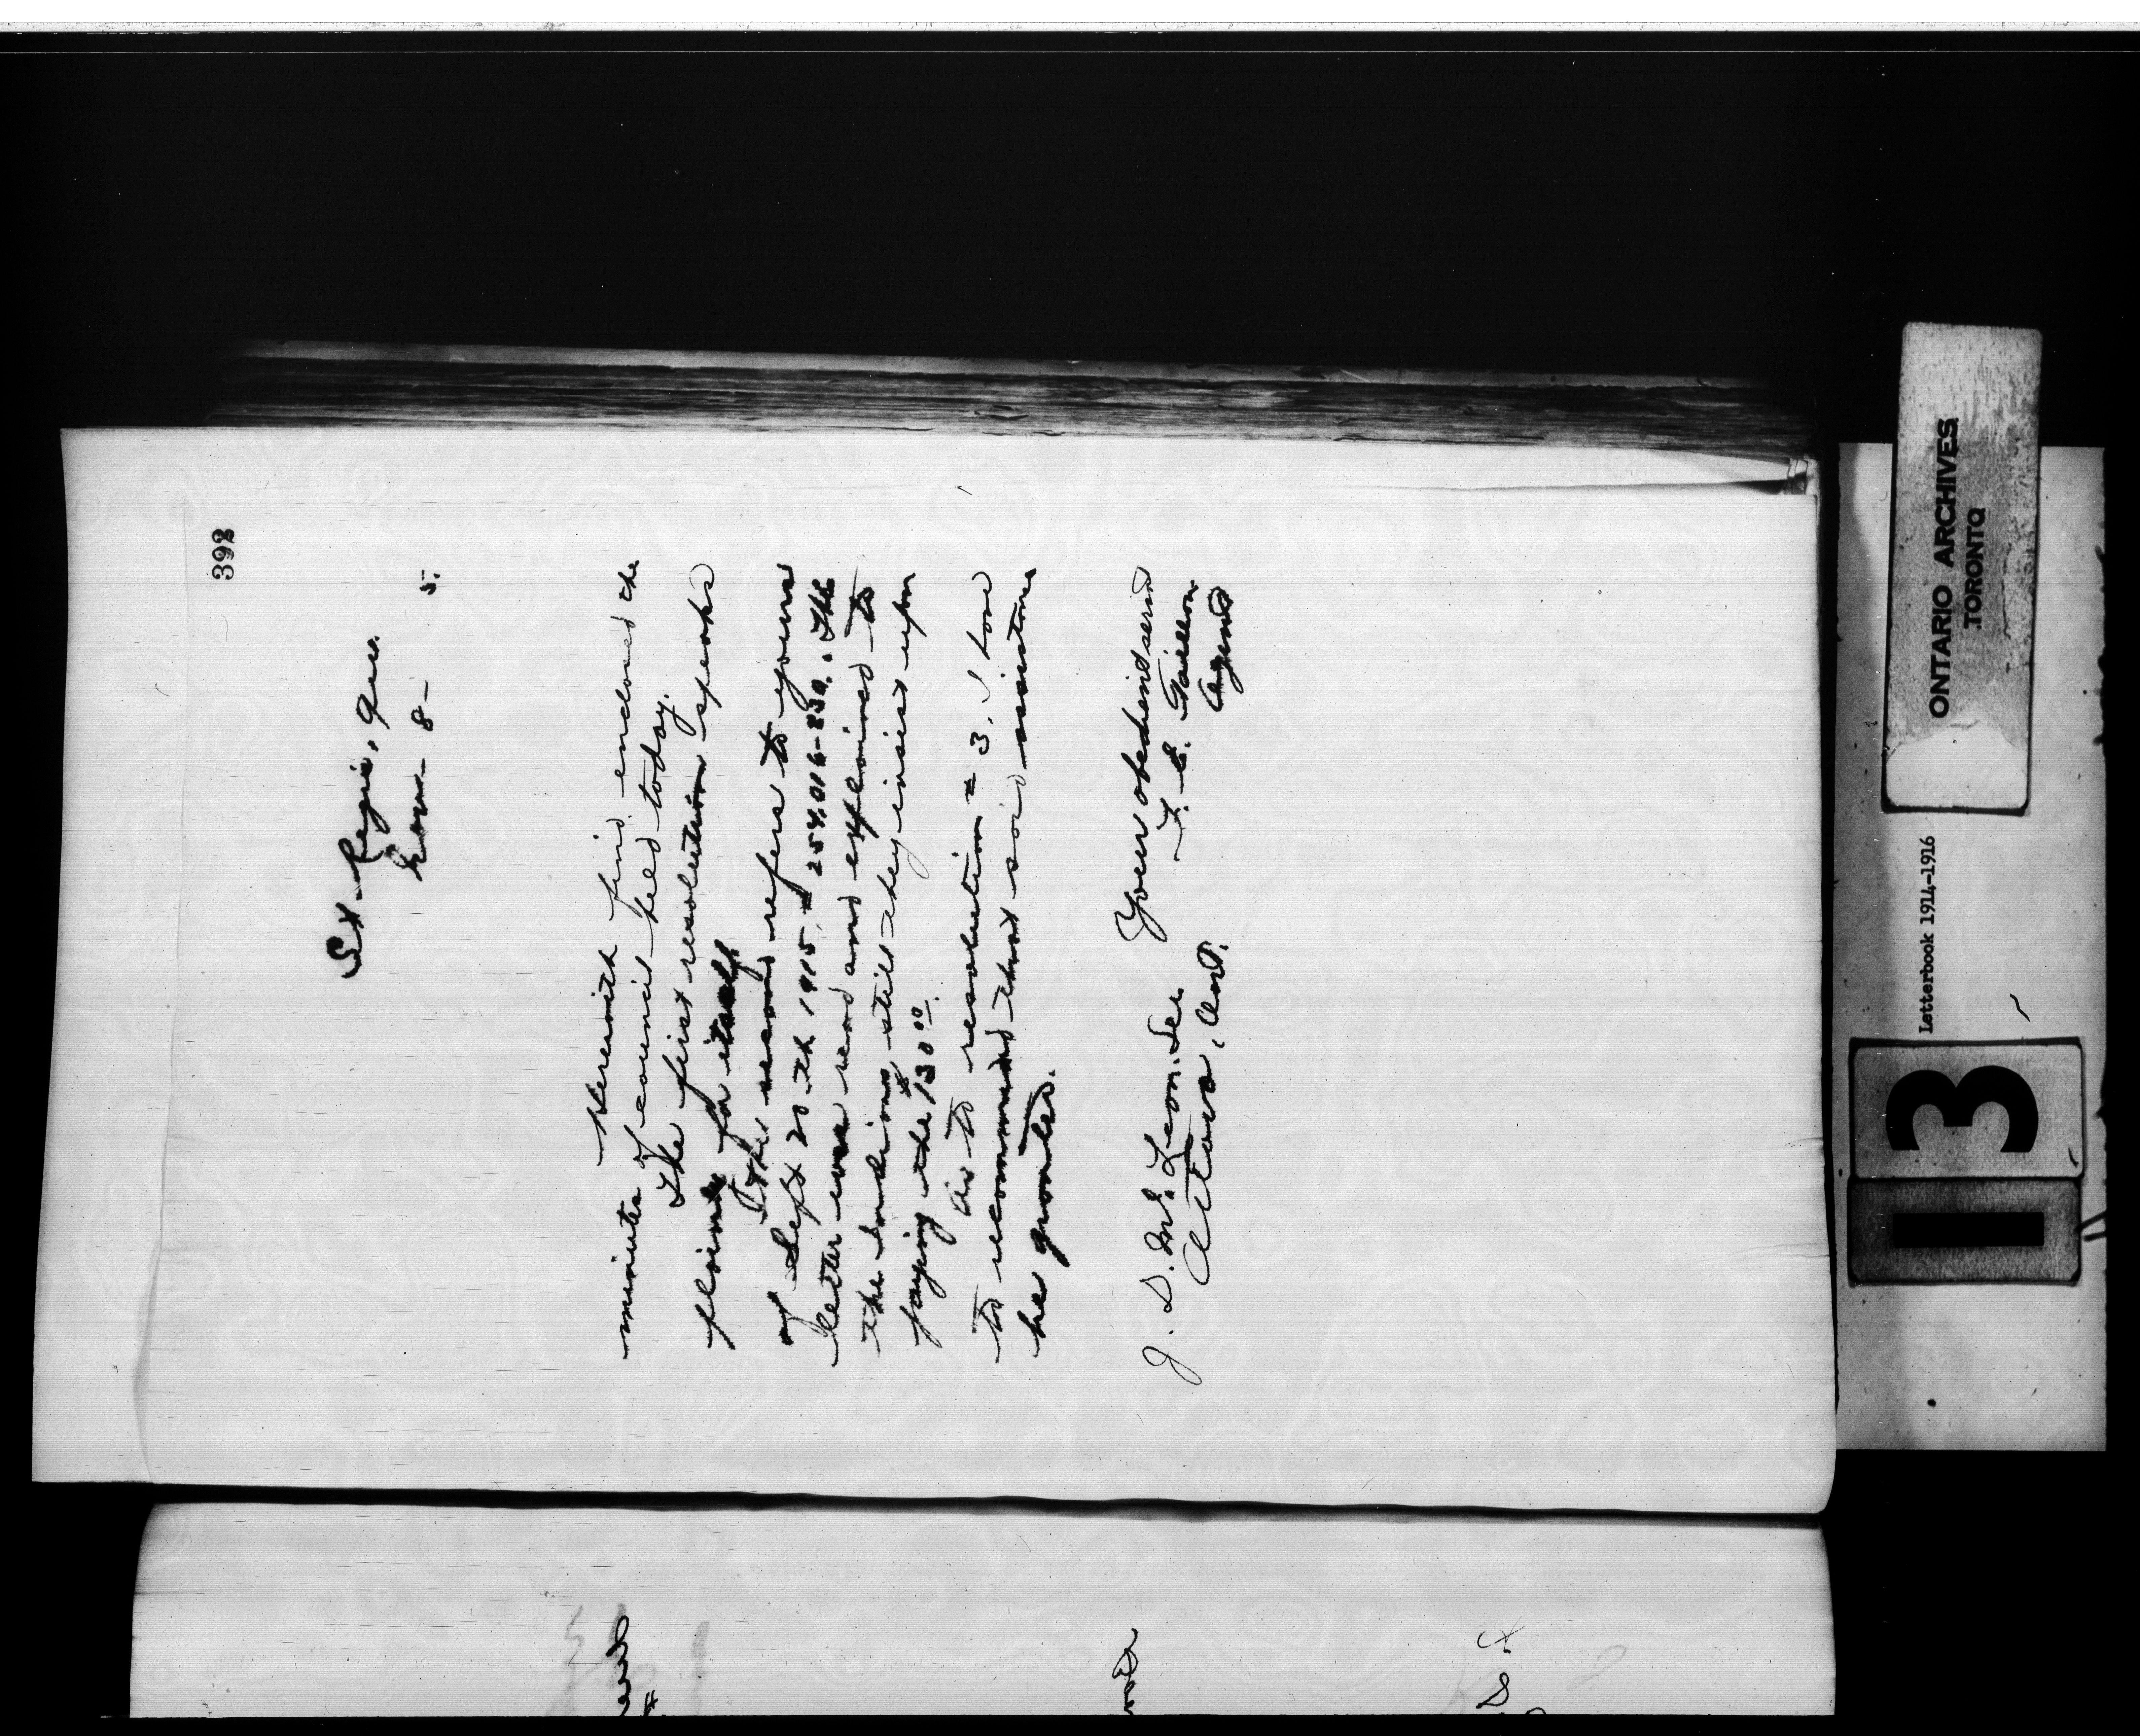 398
St. Regis, Que.
Nov. 8 - 5.
Herewith find enclosed the
minutes of council held today.
The first resolution speaks
plainly for itself
The second refers to yours
of Sept 20th 1915, # 254,016-830. The
letter was read and explained to
the Indians, still they insist upon
paying the $130.00.
As to resolution # 3, I have
to recommend that said assistance
be granted.
Your obedient servt
F. E. Taillon
Agent
J. D. McLean. Sec
Ottawa, Ont.
ONTARIO ARCHIVES
TORONTO
Letterbook 1914-1916
13